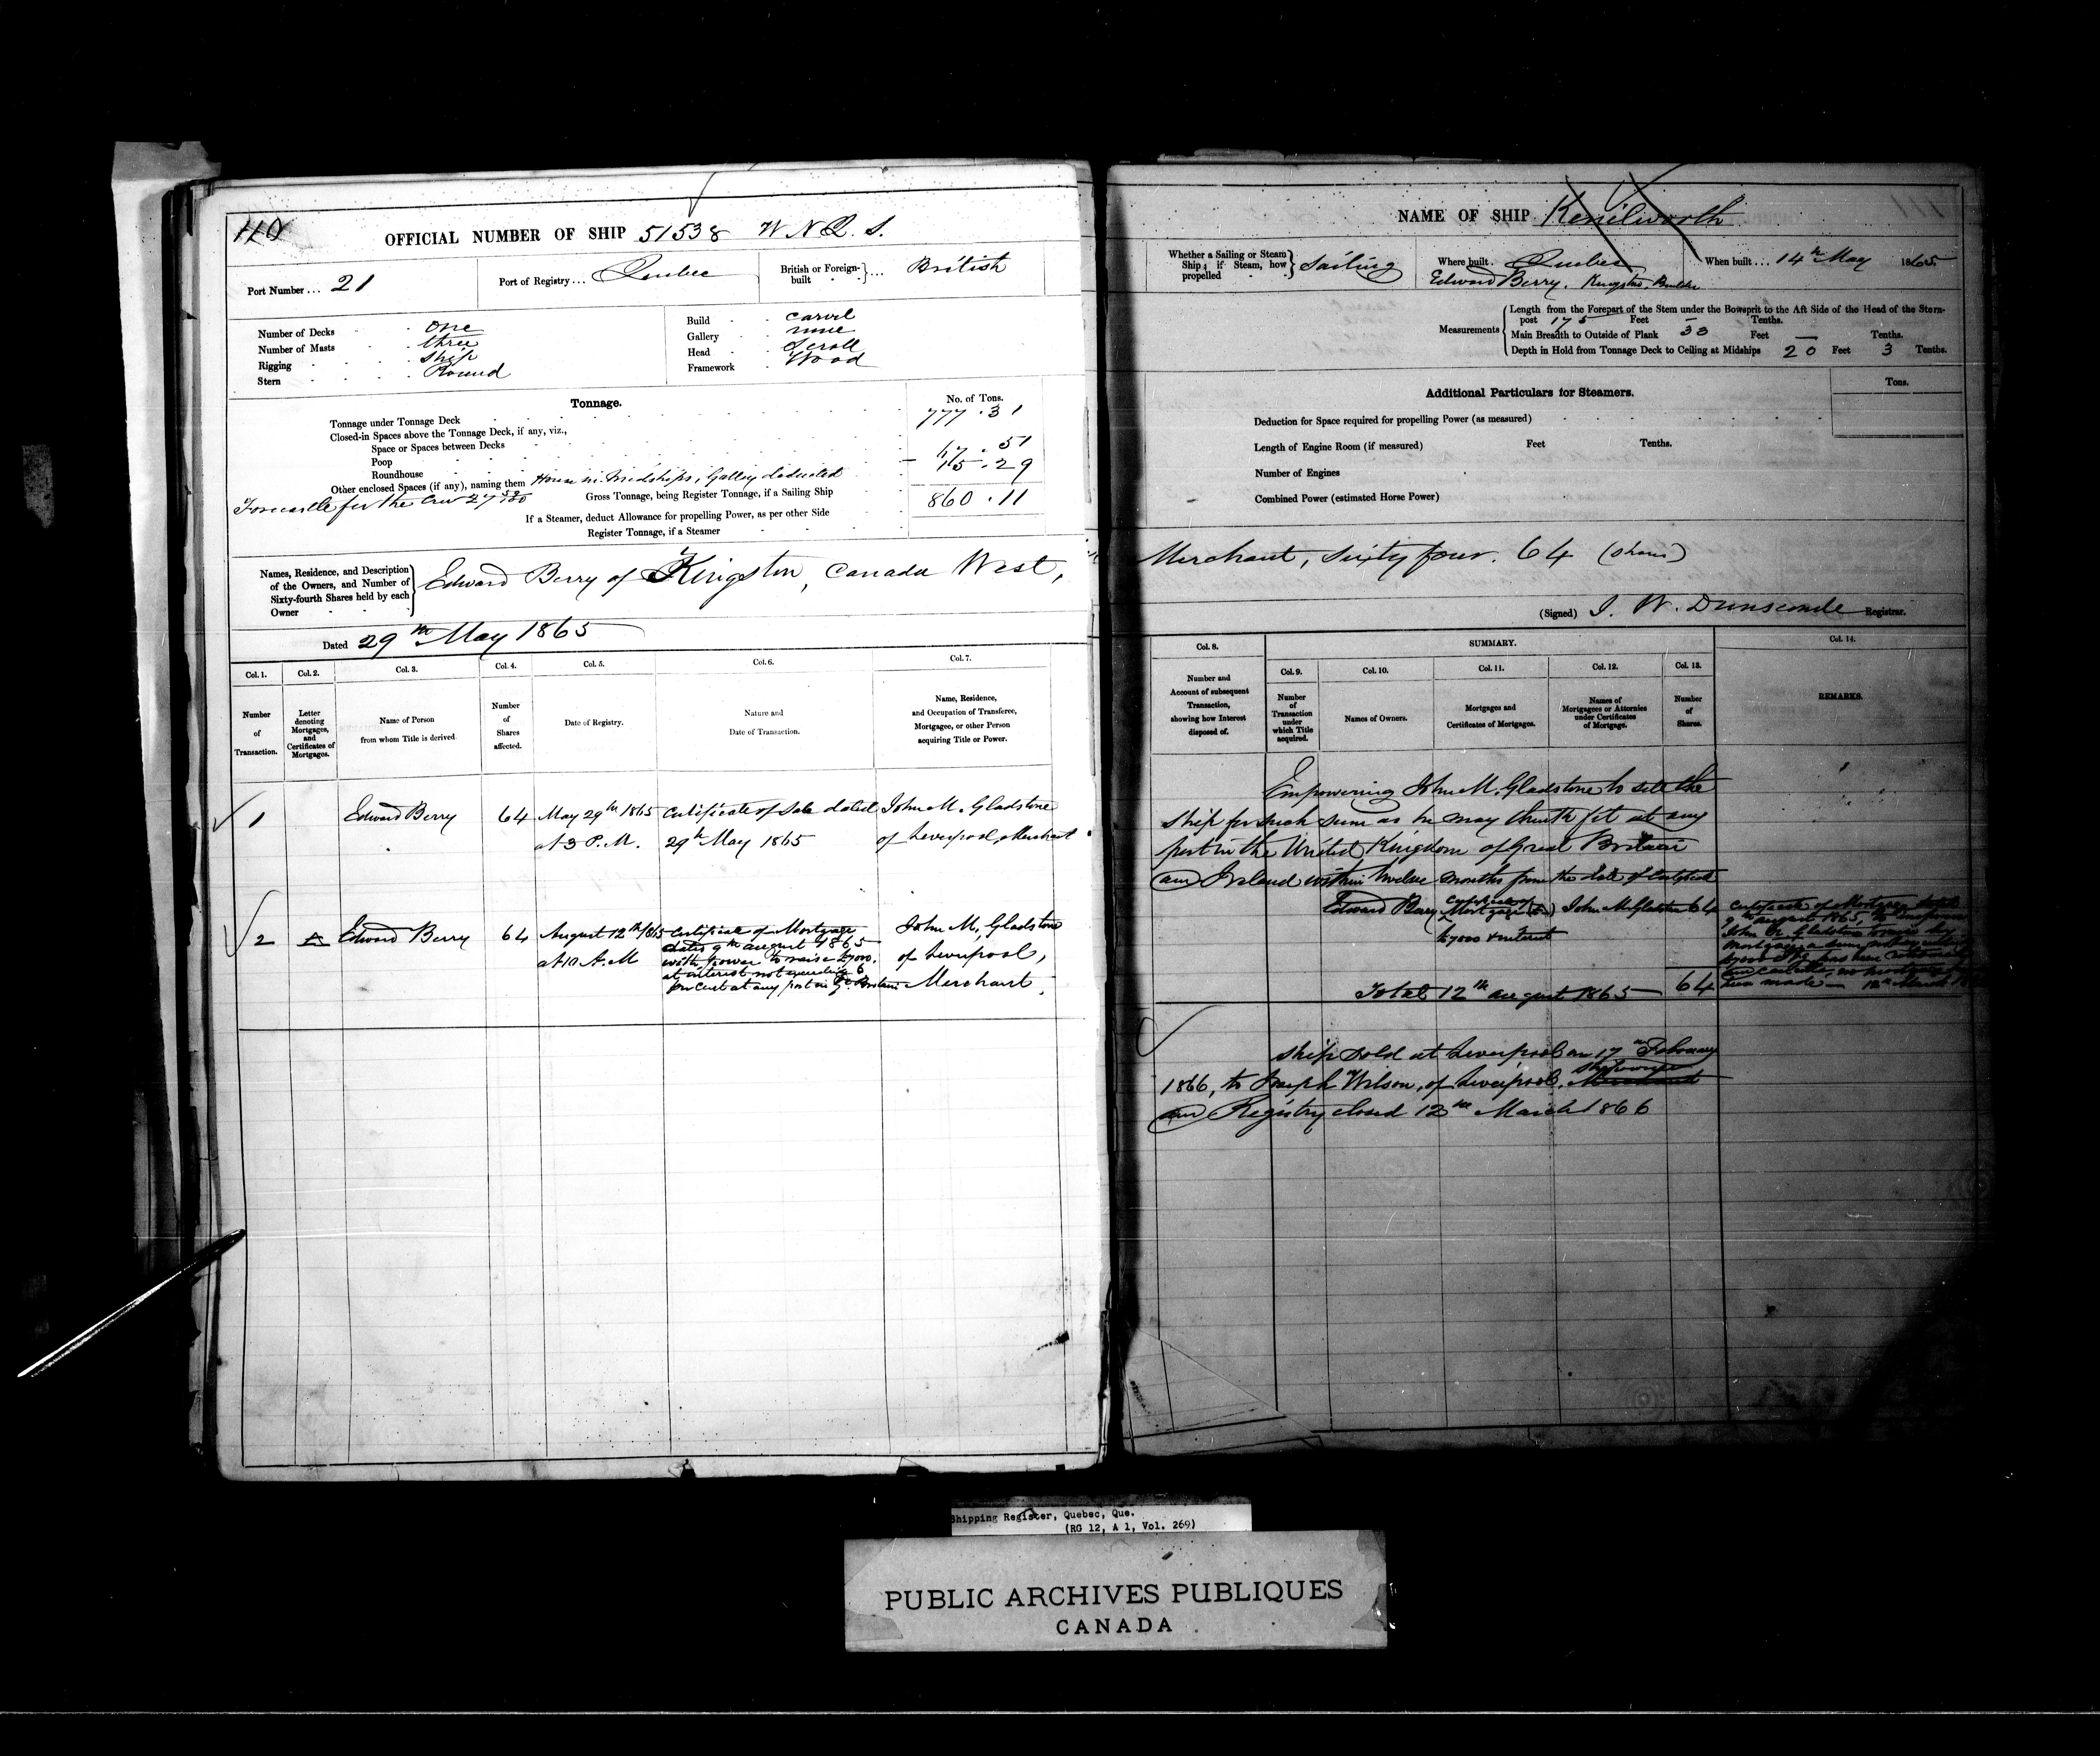 110
OFFICIAL NUMBER OF SHIP 51538 W N Q. S.
Port Number ... 21
Port of Registry ... Quebec
British or Foreign-built } ... British
Number of Decks - one
Number of Masts - three
Rigging - Ship
Stern - Round
Build - carvel
Gallery - none
Head - Scroll
Framework - Wood
Tonnage.
No. of Tons.
Tonnage under Tonnage Deck 777.31
Closed-in Spaces above the Tonnage Deck, if any, viz.,
Space or Spaces between Decks
Poop 67.51
Roundhouse 15.29
Other enclosed Spaces (if any), naming them House in Midships, Galley deducted
Forecastle for the Crew 27
Gross Tonnage, being Register Tonnage, if a Sailing Ship 860.11
If a Steamer, deduct Allowance for propelling Power, as per other Side
Register Tonnage, if a Steamer
Names, Residence, and Description of the Owners, and Number of Sixty-fourth Shares held by each Owner } Edward Berry of Kingston, Canada West,
Dated 29th May 1865
Col. 1. Col. 2. Col. 3. Col. 4. Col. 5. Col. 6. Col. 7.
Number of Transaction.
Letter denoting Mortgages, and Certificates of Mortgages.
Name of Person from whom Title is derived.
Number of Shares affected.
Date of Registry.
Nature and Date of Transaction.
Name, Residence, and Occupation of Transferee, Mortgagee, or other Person acquiring Title or Power.
1 Edward Berry 64 May 29th 1865 Certificate of Sale dated John M. Gladstone
at 3 P.M. 29th May 1865 of Liverpool, Merchant
2 A Edward Berry 64 August 12th 1865 Certificate of Mortgage John M. Gladstone
dated 9th August 1865
at 10 A.M with power to raise £7000. of Liverpool,
at interest not exceeding 6
per cent at any port in Gt. Britain Merchant.
NAME OF SHIP Kenilworth
Whether a Sailing or Steam Ship; if Steam, how propelled } Sailing
Where built. Quebec
When built ... 14th May 1865
Edward Berry, Kingston, Builder
Measurements
Length from the Forepart of the Stem under the Bowsprit to the Aft Side of the Head of the Stern-
post 175 Feet — Tenths.
Main Breadth to Outside of Plank 33 Feet — Tenths.
Depth in Hold from Tonnage Deck to Ceiling at Midships 20 Feet 3 Tenths.
Additional Particulars for Steamers.
Tons.
Deduction for Space required for propelling Power (as measured)
Length of Engine Room (if measured) Feet Tenths.
Number of Engines
Combined Power (estimated Horse Power)
Merchant, Sixty four. 64 (shares)
(Signed) J. W. Dunscomb Registrar.
Col. 8. SUMMARY. Col. 14.
Col. 9. Col. 10. Col. 11. Col. 12. Col. 13.
Number and Account of subsequent Transaction, showing how Interest disposed of.
Number of Transaction under which Title acquired.
Names of Owners.
Mortgages and Certificates of Mortgages.
Names of Mortgagees or Attornies under Certificates of Mortgage.
Number of Shares.
REMARKS.
Empowering John M. Gladstone to sell the
ship for such sum as he may think fit at any
port in the United Kingdom of Great Britain
and Ireland within twelve months from the date of Certificate
Edward Berry Certificate of Mortgage (A) John M Gladstone 64
£7000 & interest
Certificate of Mortgage dated
9th August 1865, to
John M. Gladstone to raise by
Mortgage a sum not exceeding
£7000 Stg has been returned
and cancelled, no mortgage
been made — 12th March
Total 12th August 1865 64
Ship sold at Liverpool on 17th February
1866, to Joseph Wilson, of Liverpool, Shipowner Merchant
and Registry closed 12th March 1866
Shipping Register, Quebec, Que.
(RG 12, A 1, Vol. 269)
PUBLIC ARCHIVES PUBLIQUES
CANADA